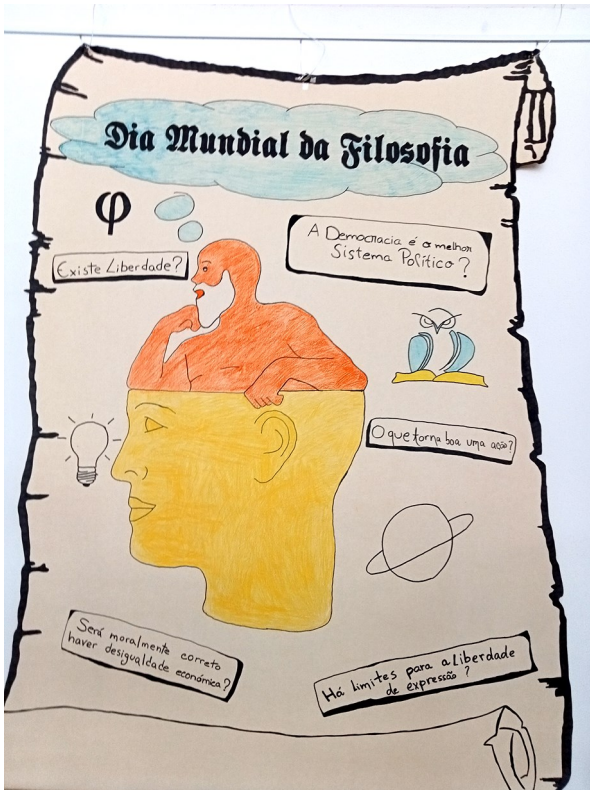 Dia Mundial da Filosofia
φ
Existe Liberdade?
A Democracia é o melhor
Sistema Político?
O que torna boa uma acão?
Será moralmente correto
haver desigualdade económica?
Há limites para a Liberdade
de expressão?